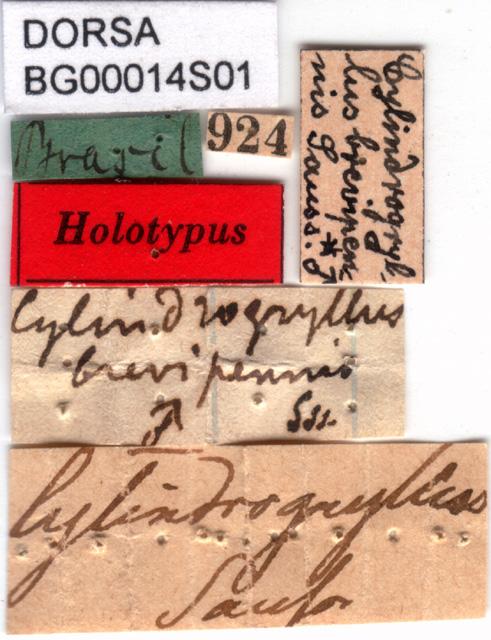 DORSA
BG00014S01
Brasil
924
Cylindrogryl
lus brevipen
nis Sauss. ♂
*
Holotypus
Cylindrogryllus
brevipennis
♂ Sss.
Cylindrogryllus
Sauss